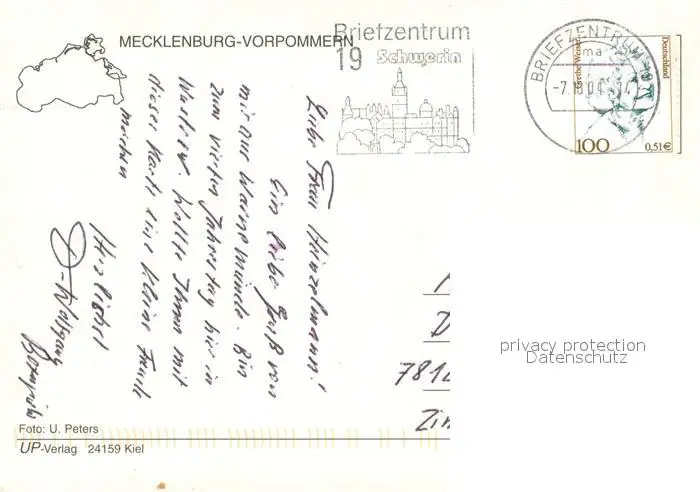 MECKLENBURG-VORPOMMERN
Briefzentrum
19 Schwerin
BRIEFZENTRUM 19
ma
-7.10.01
Grethe Weiser
Deutschland
100
0,51€
Liebe Frau Heinzelmann!
Ein liebe Gruß von
mir aus Warnemünde. Bin
zum vierten Jahrestag hier in
Wollte Ihnen mit
dieser Karte eine kleine Freude
machen
Herzlichst
Wolfgang
D
781
Zim
privacy protection
Datenschutz
Foto: U. Peters
UP-Verlag 24159 Kiel